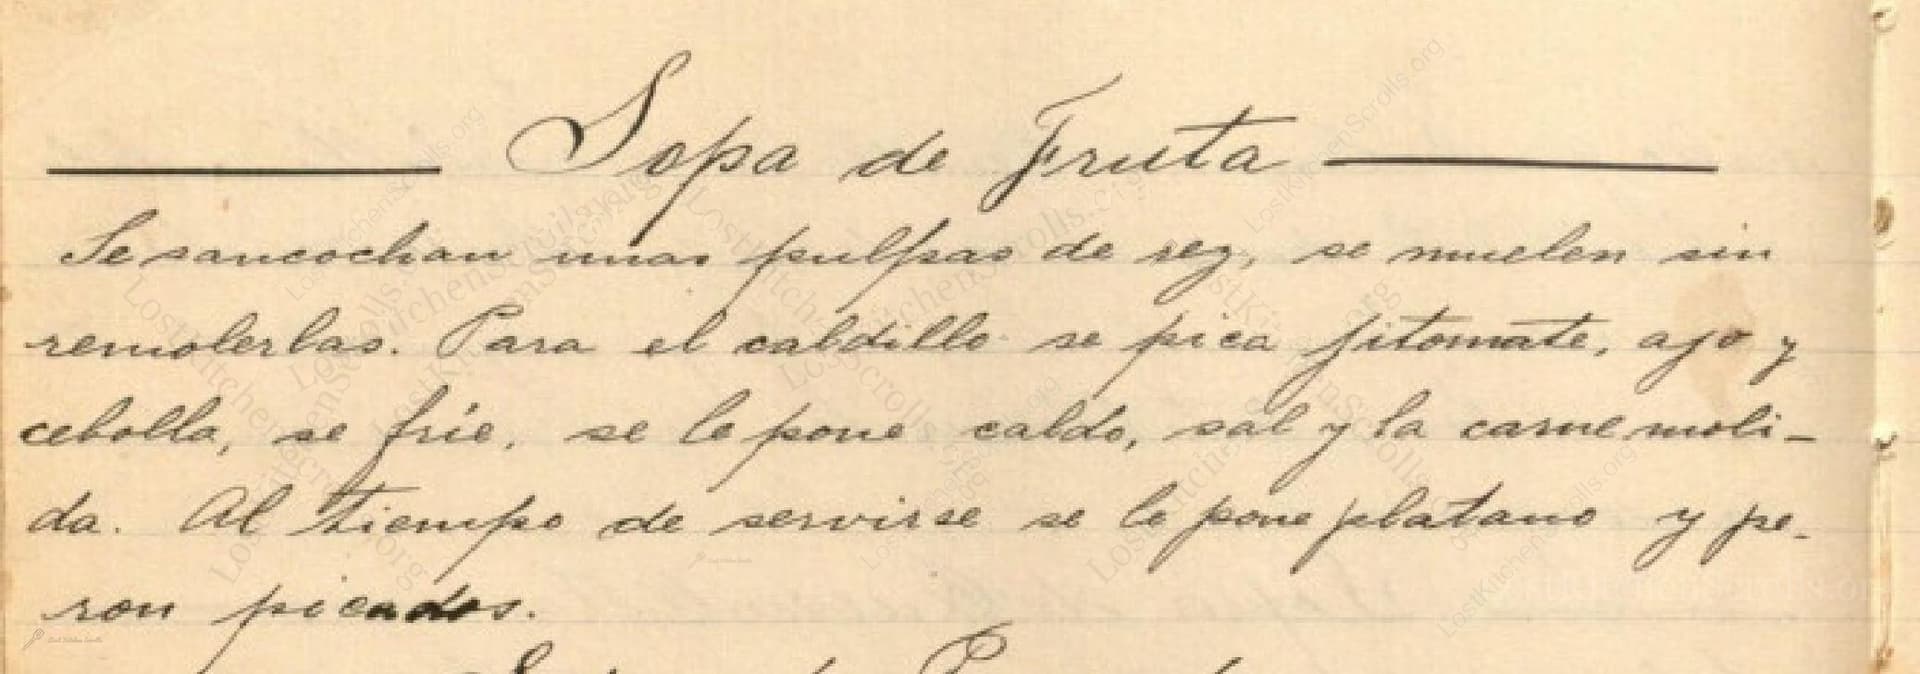 Sopa de Fruta
Se sancochan unas pulpas de rez, se muelen sin
remolerlas. Para el caldillo se pica jitomate, ajo y
cebolla, se fríe, se le pone caldo, sal y la carne moli-
da. Al tiempo de servirse se le pone platano y pe-
ron picados.